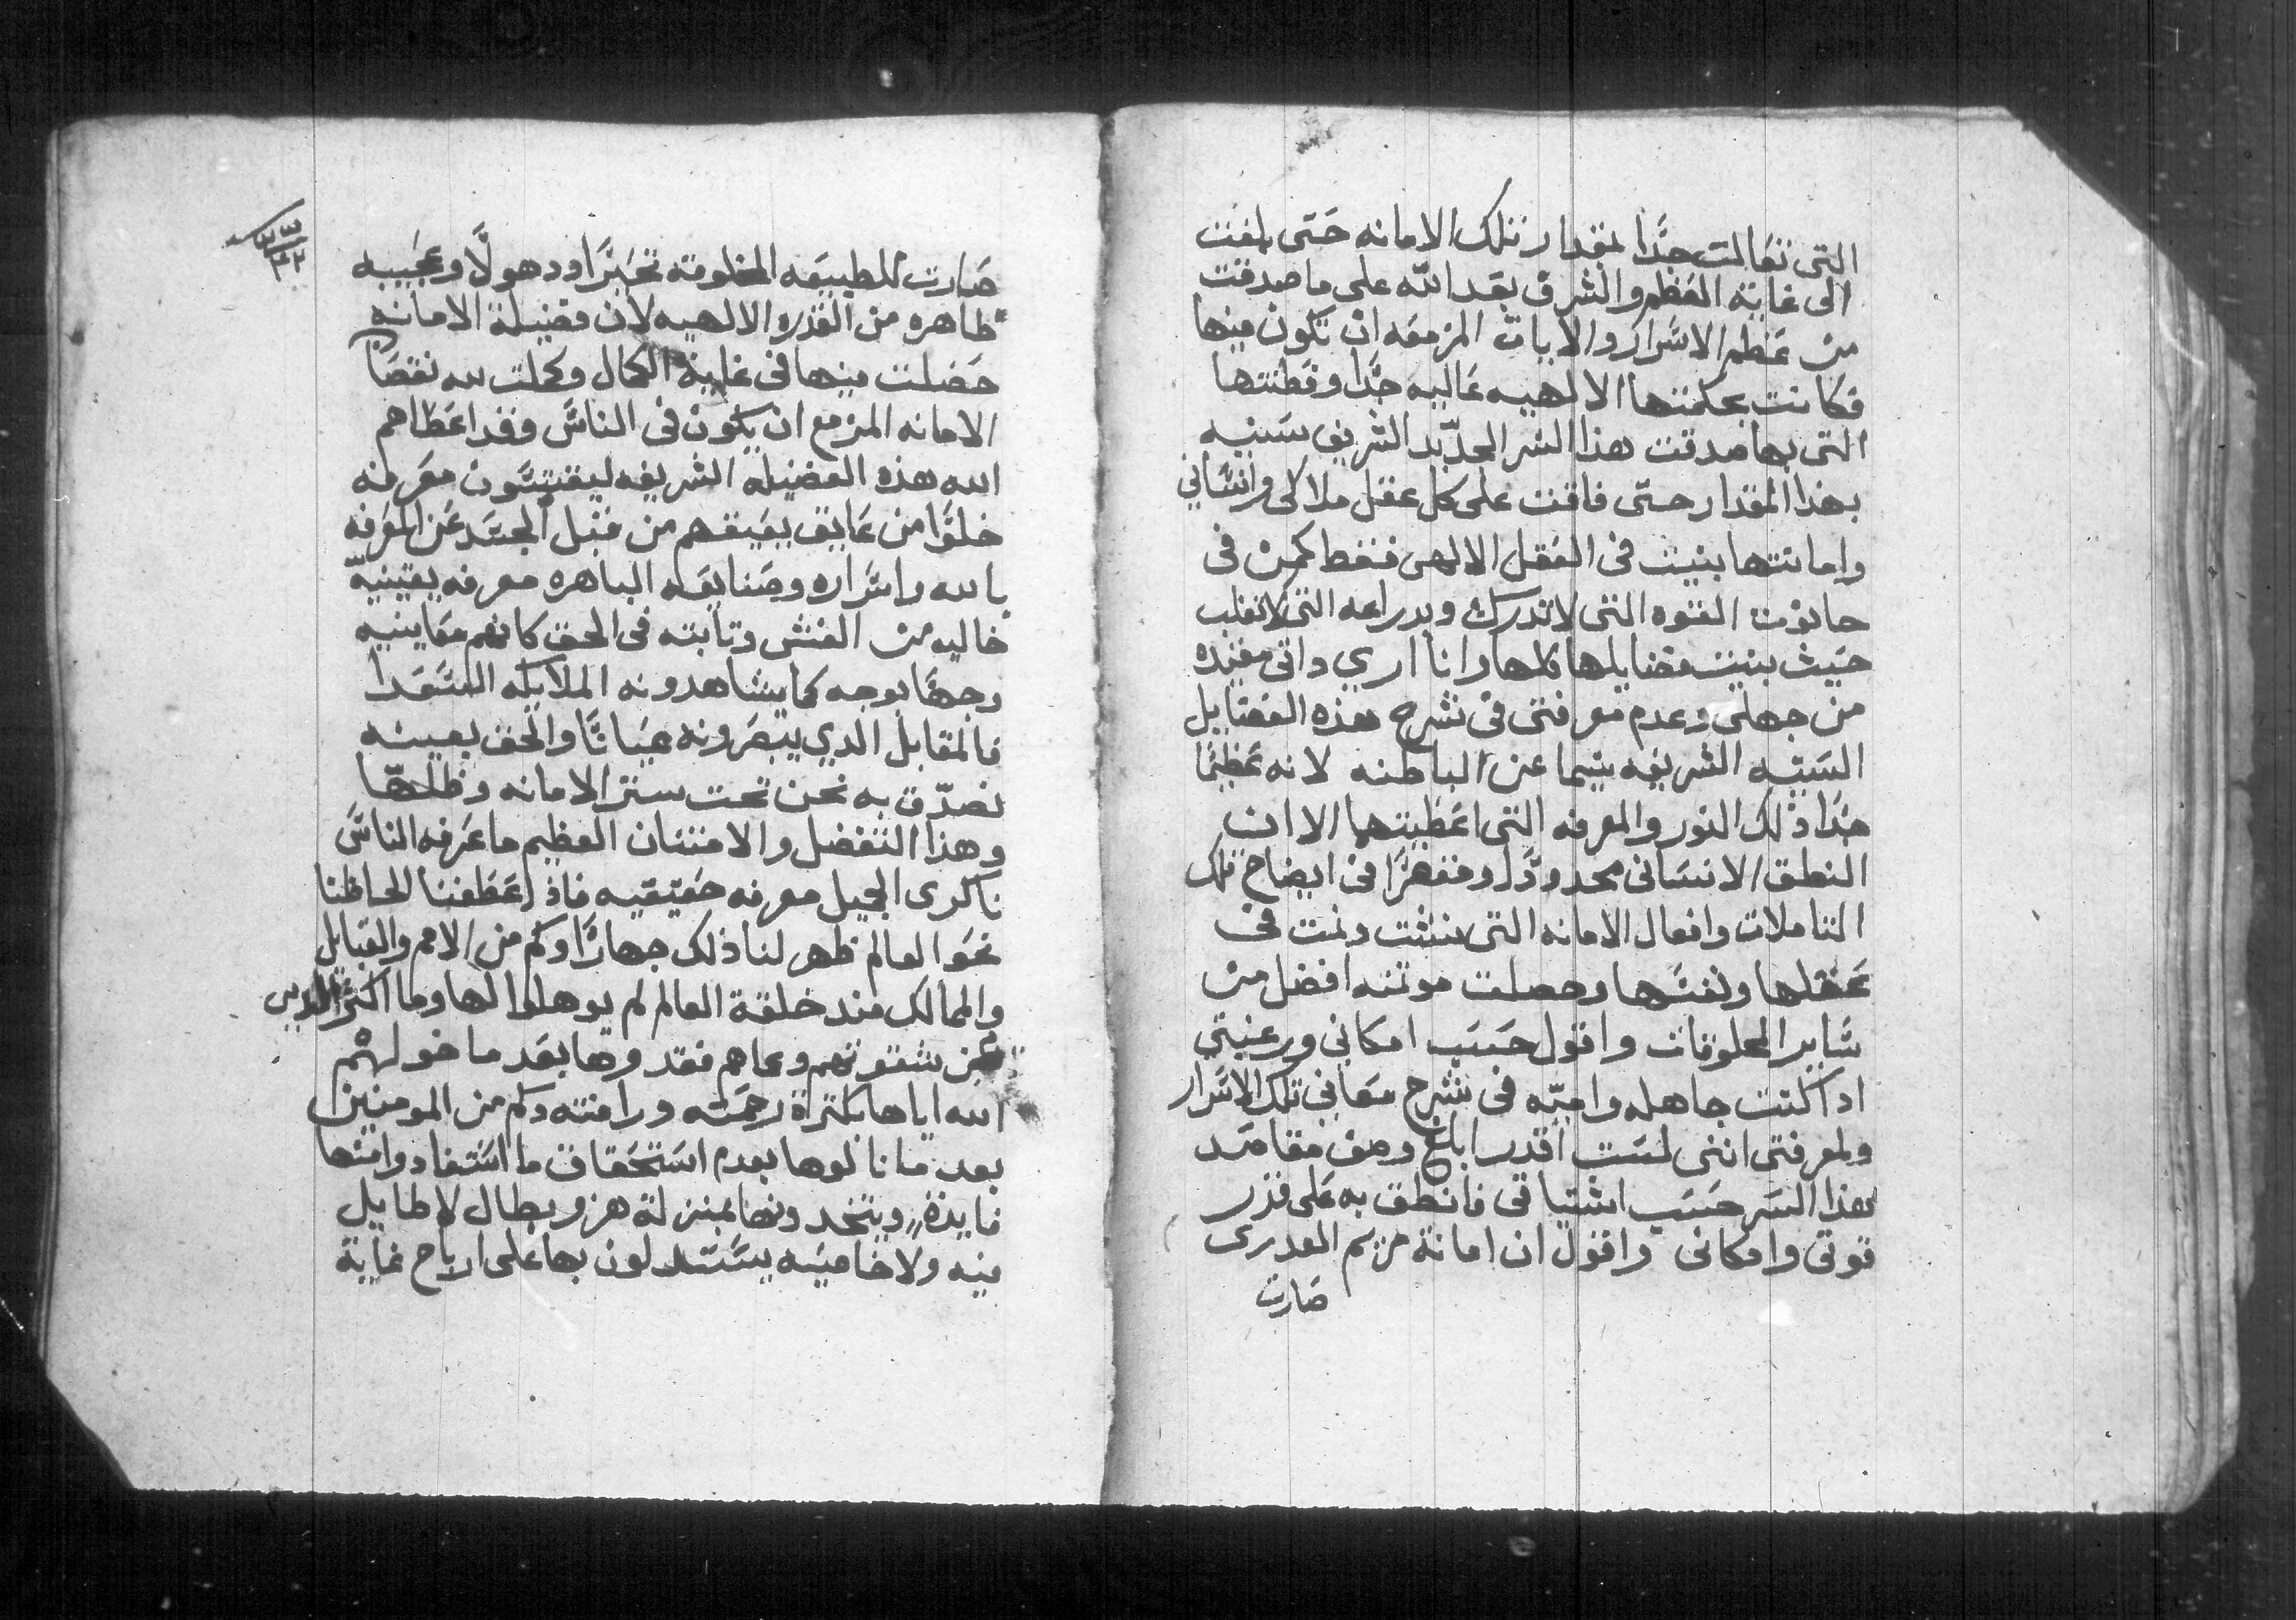 التي تعالت جدًا بمقدار تلك الامانه حتى بلغت
الى غاية العظم والشرف بعد الله على ما صدقت
من عظم الاسرار والايات المزمعه ان تكون منها
فكانت بحكمتها الالهيه عاليه جدًا وفطنتها
التي بها صدقت هذا السر الجديد الشريف سنيه
بهذا المقدار حتى فاقت على كل عقل ملاكي وانساني
وامانتها بنيت في العقل الالهي فقط كمن في
حانوت القوه التي لا تدرك وبدراعه التي لا تغلب
حيث بنيت فضايلها كلها وانا اري داتي مقيده
من جهلي وعدم معرفتي في شرح هذه الفضايل
السنيه الشريفه سيما عن الباطنه لانه عظيمًا
جدًا ذلك النور والمعرفه التي اعطيتها الا ان
النطق الانساني محدودًا وفقهرًا في ايضاح تلك
التاملات وافعال الامانه التي نشت ونمت في
عقلها ونفسها وحصلت موتنه افضل من
ساير المخلوقات واقول حسب امكاني ورغبتي
اد اكنت جاهله واميّه في شرح معاني تلك الاسرار
ولمعرفتي انني لست اقدر ابلغ وصف مقاصد
هذا السر حسب اشتياقي فانطق به على قدر
قوتي وامكاني واقول ان امانة مريم العدرى
صارت
٣٣
٣٢
صارت للطبيعه المخلوقه تحيرًا ودهولًا وعجيبه
ظاهره من القدره الالهيه لان فضيلة الامانه
حصلت منها في غاية الكمال وكملت لله نقصان
الامانه المزمع ان يكون في الناس وقد اعطاهم
الله هذه الفضيله الشريفه ليقتنون معرفه
خلوًا من عايق يعيقهم من قبل الجسد عن المعرفه
بالله واسراره وصنايعه الباهره معرفه يقينيه
خاليه من الغش وتابته في الحق كانهم معاينيه
وجهًا بوجه كما يشاهدونه الملايكه السعدا
فالمقابل الدي يبصرونه عيانًا والحق بعينه
نصدق به نحن تحت ستر الامانه وظلها
وهذا التفضل والامتنان العظيم ما عرفه الناس
ناكرى الجميل معرفه حقيقيه فاذ اعطفنا الحاظنا
نحو العالم ظهر لنا ذلك جهارًا وكم من الامم والقبايل
والممالك مند خلقة العالم لم يوهلوا لها وما اكثر الدين
من شقوتهم وعماهم فقدوها بعد ما خولهم
الله اياها بكتراة رحمته ورافته وكم من المومنين
بعد ما نالوها بعدم استحقاق ما استفادوا منها
فايدة ويتخدونها بمنزلة هزو بطال لا طايل
منه ولا خاصيه يستدلون بها على ارباح غاية